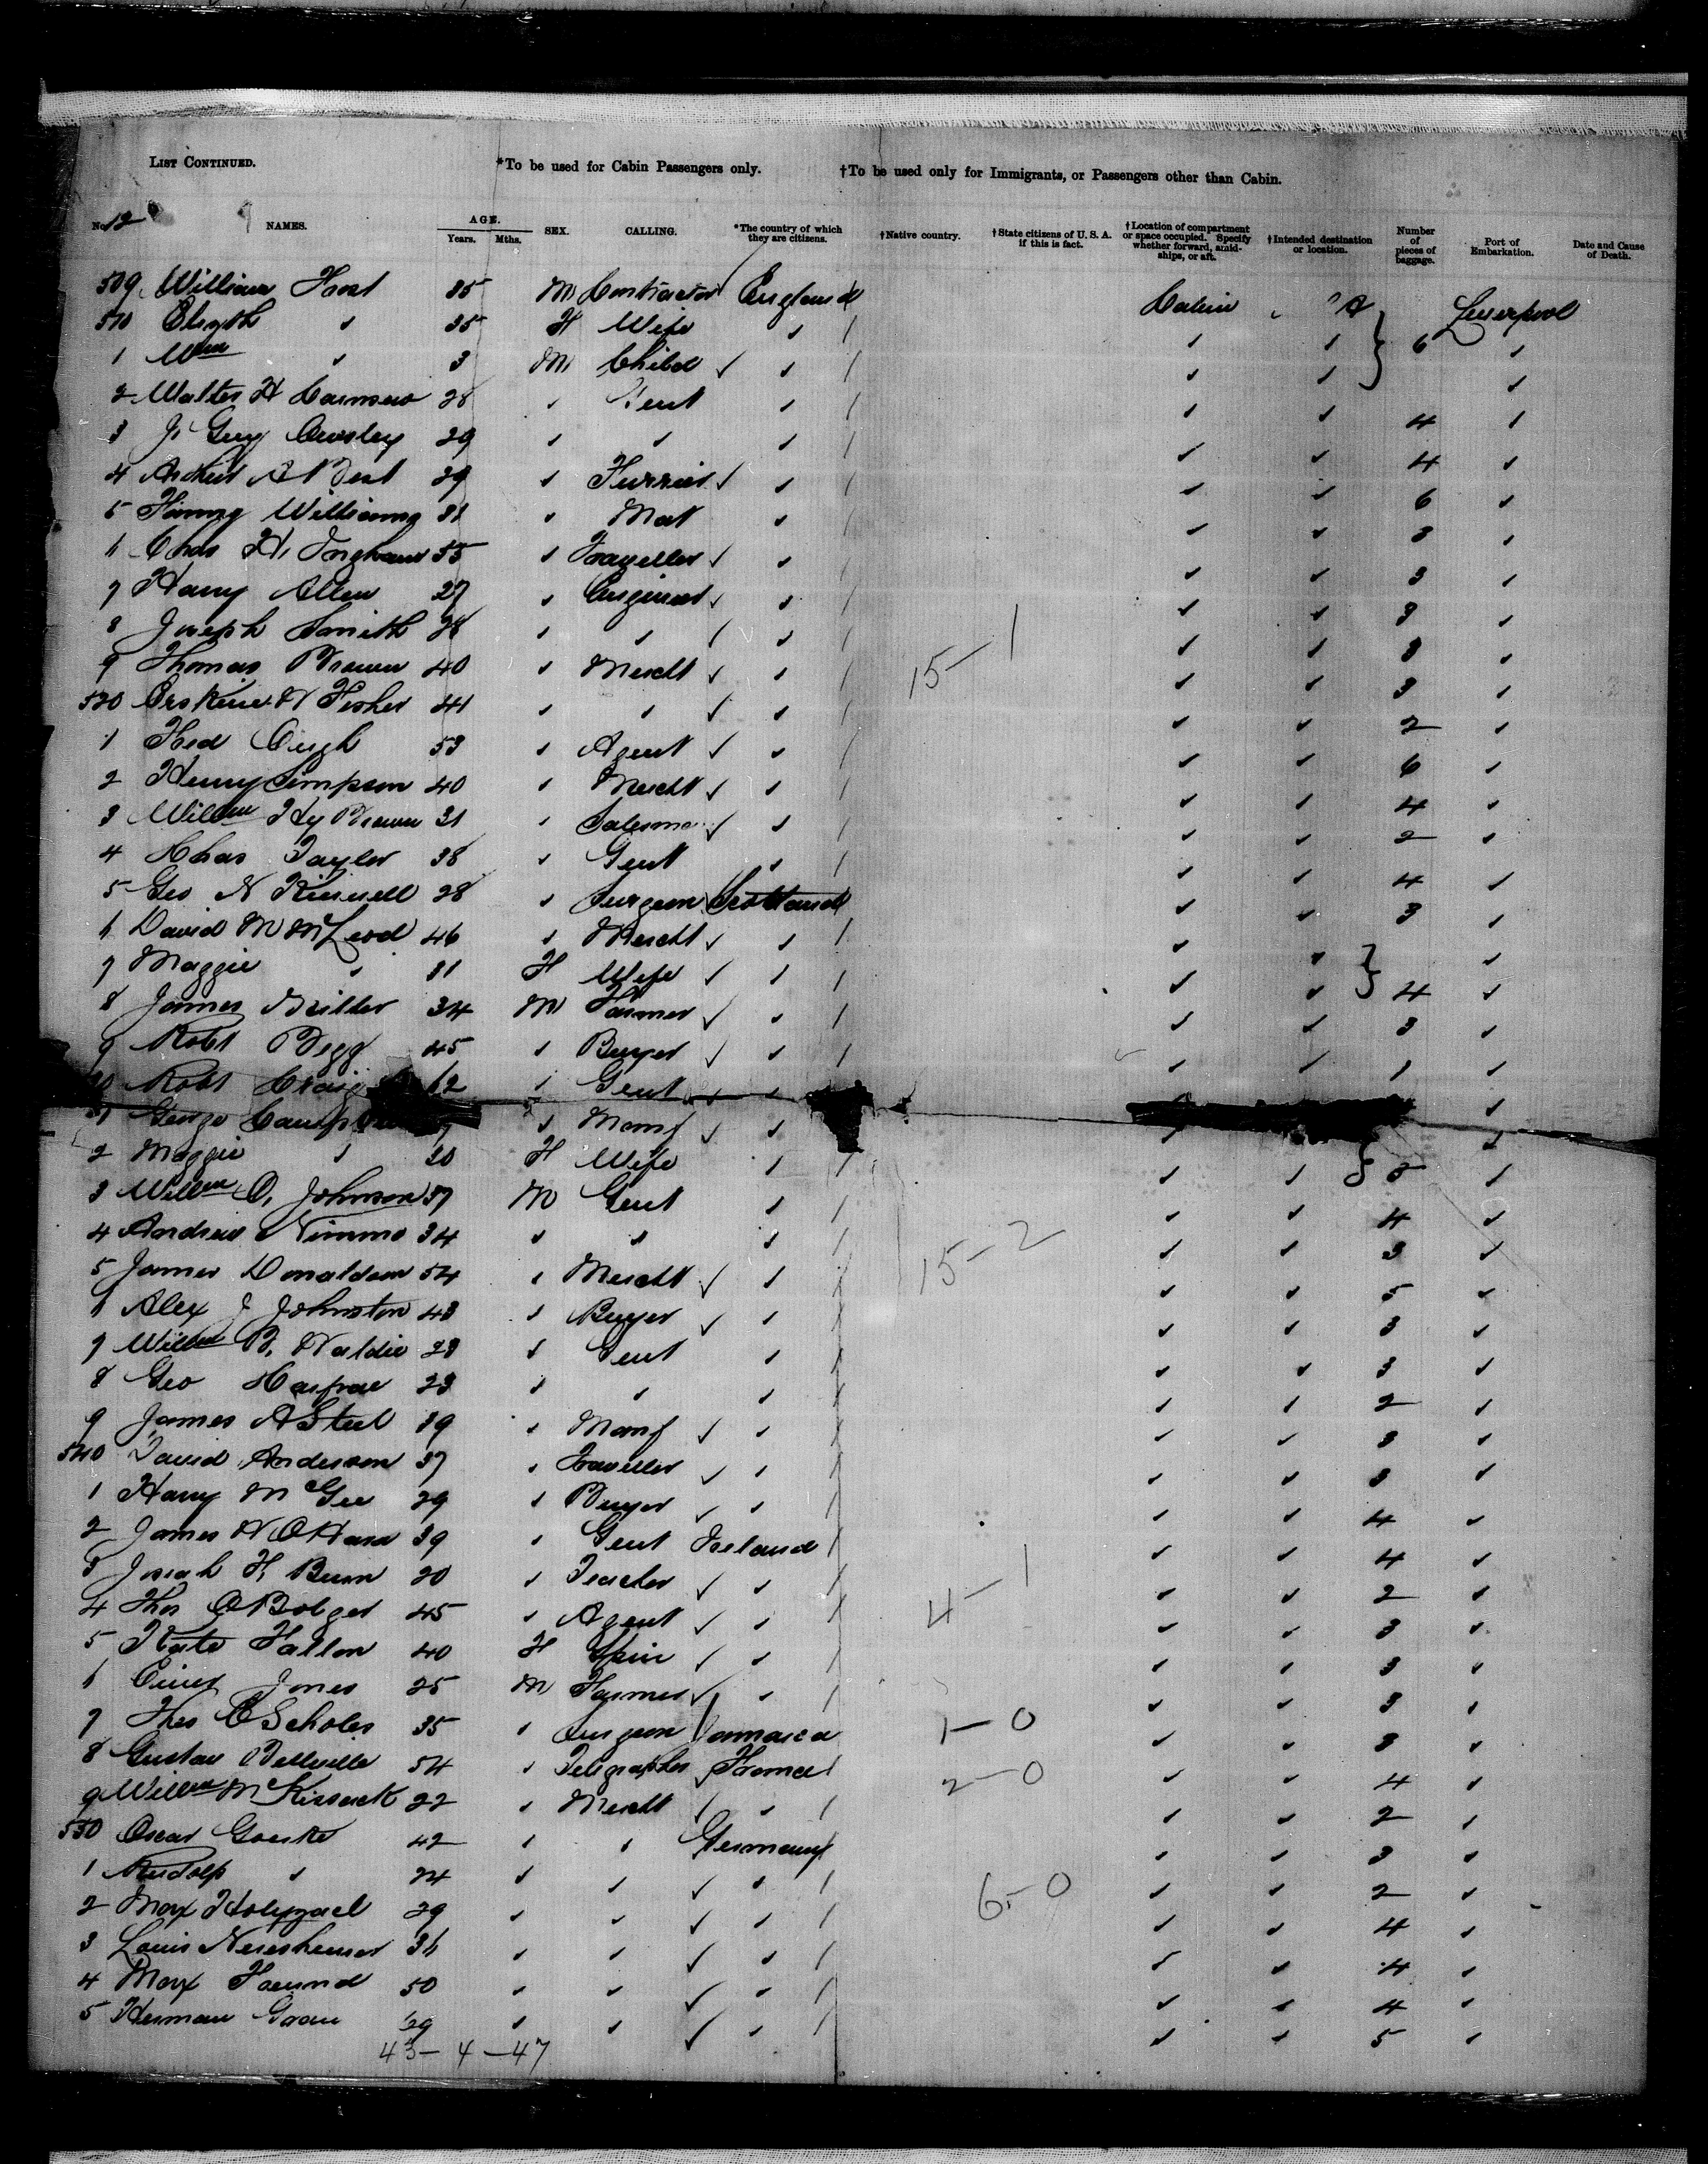 LIST CONTINUED. *To be used for Cabin Passengers only. †To be used only for Immigrants, or Passengers other than Cabin.
No. 12 NAMES. AGE. Years. Mths. SEX. CALLING. *The country of which they are citizens. †Native country. †State citizens of U. S. A. if this is fact. †Location of compartment or space occupied. Specify whether forward, amidships, or aft. †Intended destination or location. Number of pieces of baggage. Port of Embarkation. Date and Cause of Death.
509 William 35 M Contractor England Cabin Liverpool
510 " 35 F Wife " " " 6 "
1 Wm " 3 M Child " " " "
2 Walter H 28 " Gent " " " 4 "
3 J. Guy 29 " " " " " 4 "
4 29 " Furrier " " " 6 "
5 Williams 31 " " " " 3 "
6 Chas H. Ingham 55 " Traveller " " " 3 "
7 Harry Allen 27 " Engineer " " " 3 "
8 Joseph Smith 28 " " " " " 3 "
9 Thomas Brown 40 " Mercht " 15-1 " " 3 "
520 Erskine W Fisher 41 " " " " " 2 "
1 Fred 53 " Agent " " " 6 "
2 Henry Simpson 40 " Mercht " " " 4 "
3 Willm Hy Brown 31 " Salesman " " " 2 "
4 Chas Taylor 38 " Gent " " " 4 "
5 Geo N 28 " Surgeon Scotland " " 3 "
6 David M McLeod 46 " Mercht " " " "
7 Maggie " 31 F Wife " " " 4 "
8 James Miller 34 M Farmer " " " 3 "
9 Robt Begg 45 " Buyer " " " 1 "
30 Robt Craig 62 " Gent " "
31 George " Manf " " "
2 Maggie " 20 F Wife " " " 5 "
3 Willm O. Johnson 37 M Gent " " " 4 "
4 Andrew Nimmo 34 " " " 15-2 " " 3 "
5 James Donaldson 54 " Mercht " " " 5 "
6 Alex J Johnston 43 " Buyer " " " 3 "
7 Willm B. Waldie 23 " Gent " " " 3 "
8 Geo 23 " " " " " 2 "
9 James A Steel 39 " Manf " " " 3 "
540 David Anderson 37 " Traveller " " " 3 "
1 Harry McGee 29 " Buyer " " " 4 "
2 James W O'Hara 39 " Gent Ireland " " 4 "
3 Josiah H. 20 " Teacher " " " 2 "
4 Thos 45 " Agent " 4-1 " " 3 "
5 Kate Fallon 40 F Spin " " " 3 "
6 Jones 25 M Farmer " " " 3 "
7 Thos E Scholes 35 " Surgeon Jamaica 1-0 " " 3 "
8 Gustav Belleville 54 " Telegrapher France 2-0 " " 4 "
9 Willm McKissack 22 " Mercht " " " 2 "
550 Oscar 42 " " Germany " " 3 "
1 Rudolp " 24 " " " 6-0 " " 2 "
2 Max 29 " " " " " 4 "
3 Louis Neresheimer 36 " " " " " 4 "
4 Max 50 " " " " " 4 "
5 Herman 29 " " " " " 5 "
43-4-47